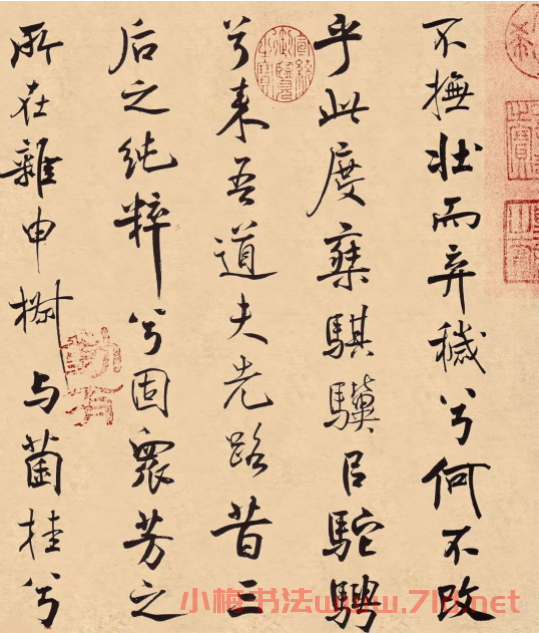 不撫壯而弃穢兮何不改
乎此度乘騏驥㠯駝騁
兮来吾道夫先路昔三
后之純粹兮固眾芳之
所在雜申椒与菌桂兮
小梅书法www.7ld.net